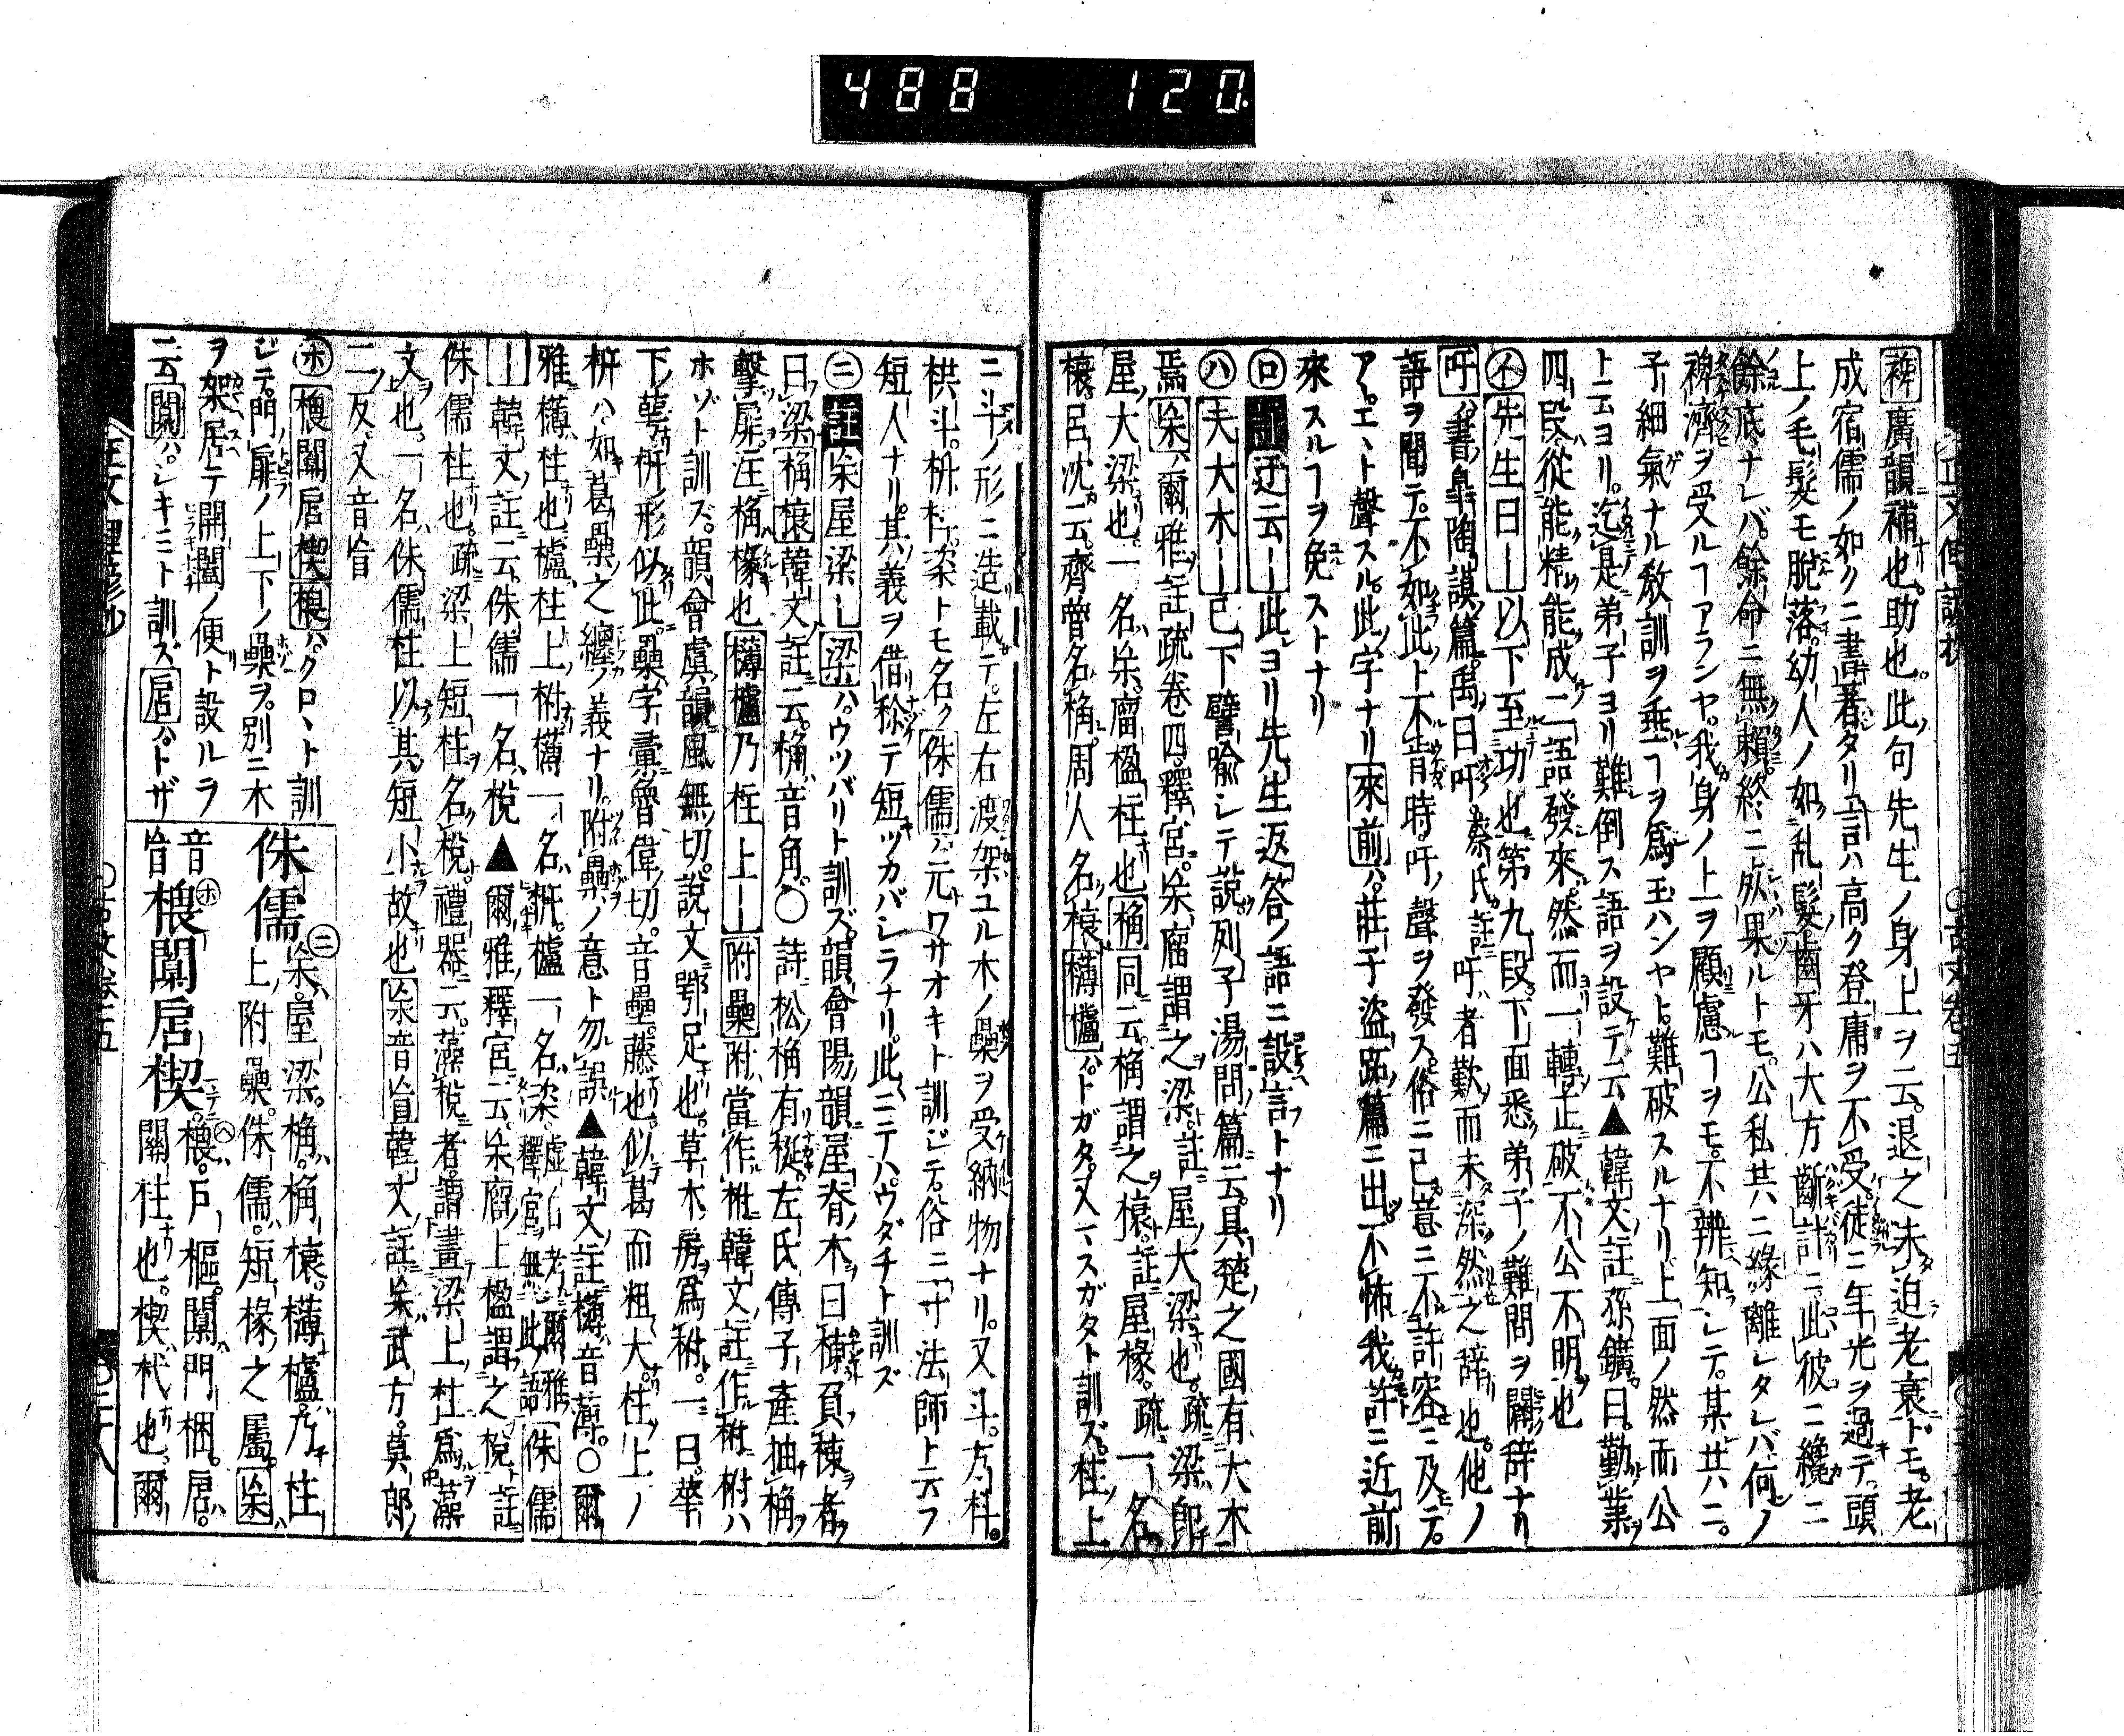 488 120
裨廣韻補也助也。此句先生ノ身上ヲ云。退之未迫老衰ドモ。老
成宿儒ノ如クニ書著タリ言ハ高ク登庸ヲ不受。徒ニ年光ヲ過テ頭
上ノ毛髮モ脫落。幼人ノ如乱髮齒牙ハ大方齗計ニ此彼ニ纔ニ
餘底ナレバ。餘命ニ無賴終ニ上ルトモ。公私共ニ緣離レタレバ何ノ
裨濟ヲ受ルヿアランヤ。我身ノ上ヲ顧慮ヿヲモ。不辨知シテ。某共ニ。
子細氣ナル敎訓ヲ垂ヿヲ爲玉ハンヤト。難破スルナリ上面ノ然而公
ト云ヨリ。迄是弟子ヨリ難倒ス語ヲ設テ云▲韓文註孫鑛曰。勤業
四段從能精能成二語發來。然而一轉正破不公不明也
㋑先生曰｜以下至功也第九段。下面悉弟子ノ難問ヲ闢辞ナリ
吁書皐陶謨篇。禹曰吁。蔡氏註吁者歎而未深然之辞也。他ノ
語ヲ聞テ。不如此ト不肯時吁ノ聲ヲ發ス。俗ニ己意ニ不許容ニ及テ。
アヽエヽト聲スル。此字ナリ來前ハ。莊子盜跖篇ニ出。不怖我許ニ近前
來スルヿヲ免ストナリ
㋺註迂云｜此ヨリ先生返答ノ語ニ設言トナリ
㋩夫大木｜已下譬喩シテ說列子湯問篇云。具楚之國有大木
焉杗爾雅註疏卷四。釋宮。杗廇謂之梁。註屋大梁也。疏梁卽
屋大梁也。一名杗廇楹柱也桷同云。桷謂之榱。註屋椽。疏一名
榱。呂沈云。齊魯名桷。周人名榱欂櫨ハ。トガタ。又マスガタト訓ズ。柱上
ニ斗ノ形ニ造載テ。左右渡架ユル木ノ櫐ヲ受納物ナリ。又斗。方枓。
栱斗。枅栌。楶トモ名ク侏儒ハ元ワサオキト訓ジテ。俗ニ一寸法師ト云フ
短人ナリ。其義ヲ借稱テ短ツカバシラナリ。此ニテハ。ウダチト訓ズ
㊁註杗屋梁｜梁ハウツバリト訓ズ。韻會陽韻屋脊木曰棟負棟者
曰梁桷榱韓文註云。桷音角〇詩松桷有梴左氏傳子產抽桷
擊扉。注桷椽也欂櫨乃柱上｜附櫐附當作柎韓文註作柎柎ハ
ホゾト訓ズ。韻會虞韻風無切。說文鄂足也。草木房爲柎。一曰。華
下萼枅形似此。櫐字彙魯偉切。音壘。藤也。似葛而粗大。柱上ノ
枅ハ如葛櫐之纏ノ義ナリ。附櫐ノ意ト勿誤▲韓文註欂音薄。〇爾
雅欂柱也櫨柱上柎欂一名枅。櫨一名楶釋宮無此語侏儒
｜韓文註云。侏儒一名梲▲爾雅釋宮云。杗廇上楹謂之梲註
侏儒柱也。疏梁上短柱名梲。禮器云。藻梲者。謂畫梁上柱爲藻
文也一名侏儒柱以其短小故也杗音旨韓文註杗武方。莫郞
二反又音旨
㋭椳闑扂楔椳ハ。クロヽト訓
ジテ。門扉ノ上下ノ櫐ヲ。別ニ木
ヲ架居テ開闔ノ便ト設ルヲ
云闑ハ。シキミト訓ズ扂ハトザ
侏儒㊁杗屋梁。桷。桷榱。欂櫨。乃柱
上附櫐。侏儒。短椽之屬杗
音旨㋭椳闑扂楔㋬椳。戶樞。闑門梱。扂。
關柱也。楔杙也。爾